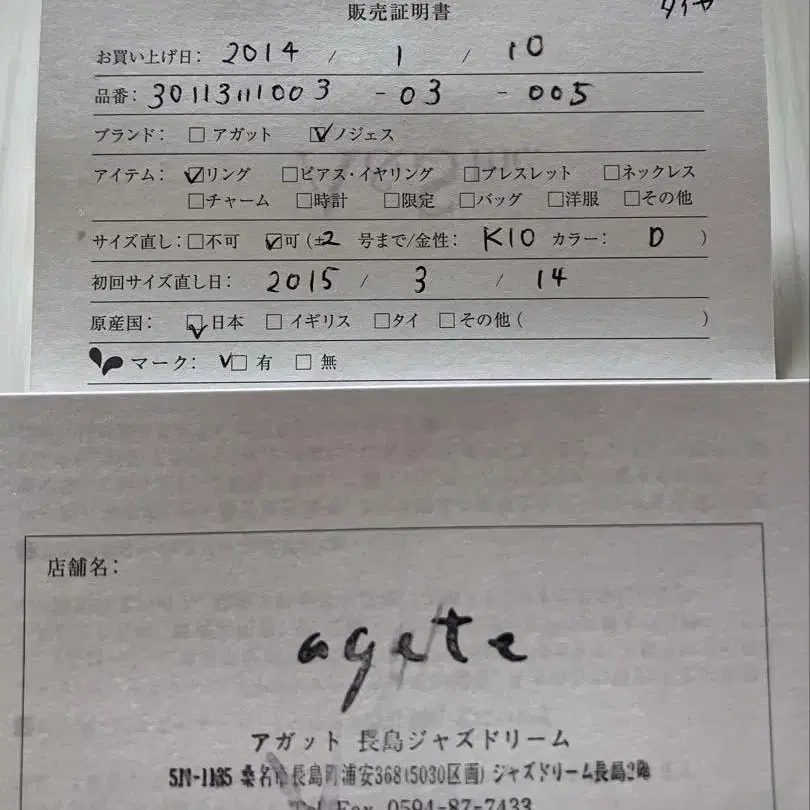 販売証明書
ダイヤ
お買い上げ日: 2014 / 1 / 10
品番: 30113111003 - 03 - 005
ブランド: □ アガット ☑ノジェス
アイテム: ☑リング □ピアス・イヤリング □ブレスレット □ネックレス
□チャーム □時計 □限定 □バッグ □洋服 □その他
サイズ直し: □不可 ☑可 (±2 号まで/金性: K10 カラー: D )
初回サイズ直し日: 2015 / 3 / 14
原産国: ☑日本 □ イギリス □タイ □その他 ( )
マーク: ☑ 有 □ 無
店舗名:
agete
アガット 長島ジャズドリーム
511-1135 桑名市長島町浦安368(5030区画) ジャズドリーム長島2階
Tel Fax 0594-87-7433